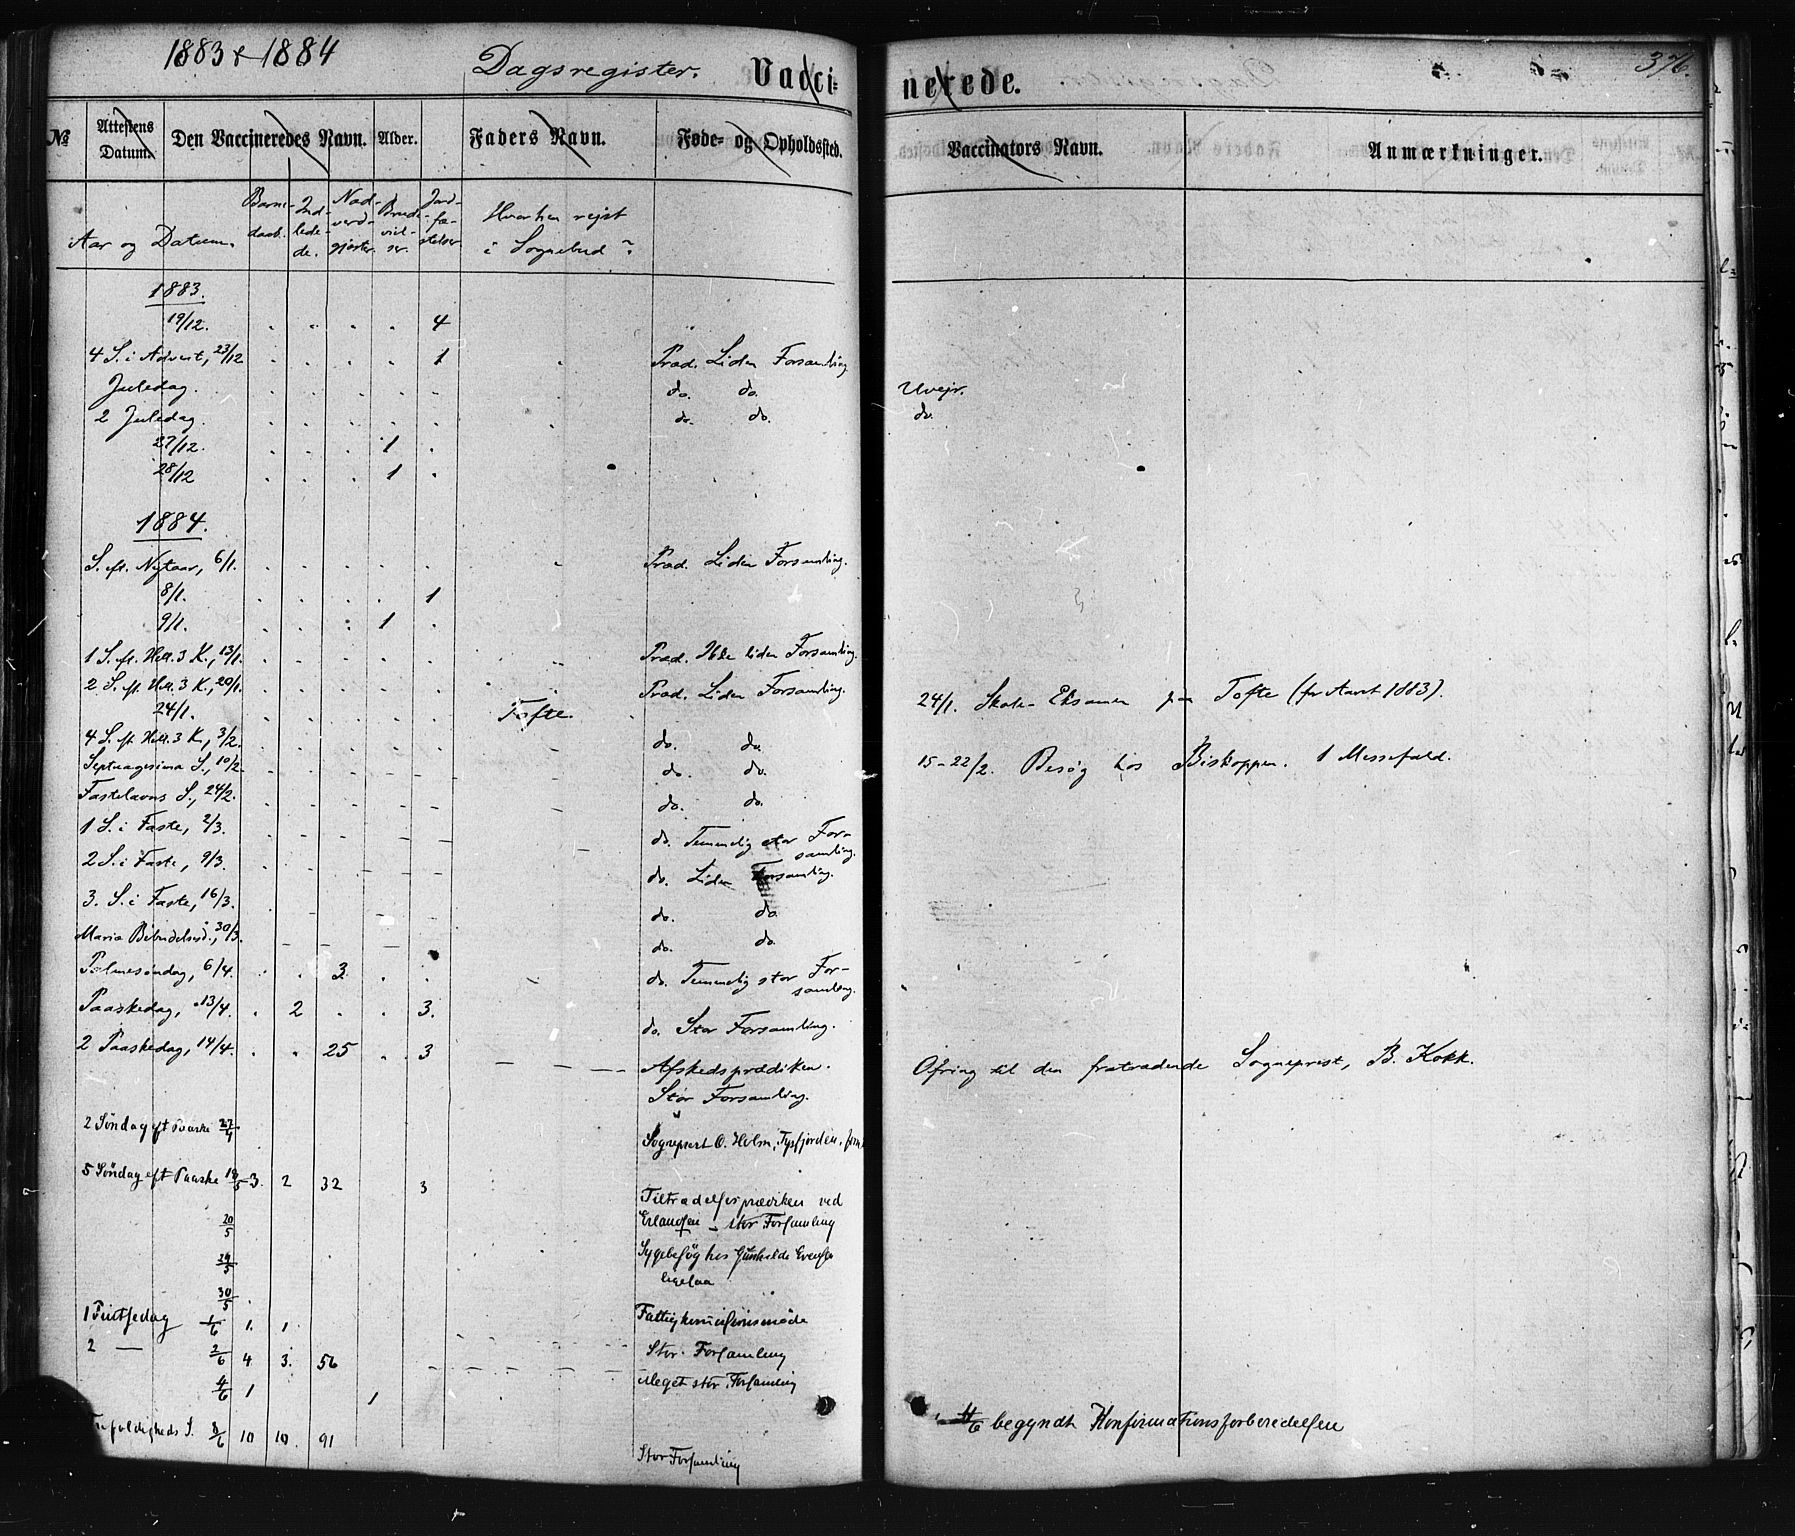 1883 & 1884 Dagsregister. Vacci= nerede. 376.
№ Attestens Datum. Den Vaccineredes Navn. Alder. Faders Navn. Føde- og Opholdssted. Vaccinators Navn. Anmærkninger.
Aar og Datum. Barne-daab. Ind-lede-de. Nad-verd-gjæster. Brud-viel-ser. Jord-fæ-stelser. Hvorhen rejst i Sognebud?
1883.
19/12. 4
4 S. i Advent, 23/12 1 Præd. Liden Forsamling
Juledag. do. do. Uvejr.
2 Juledag. do. do. do.
27/12. 1
28/12 1
1884.
S. ef. Nytaar, 6/1. Præd. Liden Forsamling.
8/1. 1
9/1. 1
1 S. ef. Hell. 3 K., 13/1. Præd. liden Forsamling.
2 S. ef. Hell. 3 K., 20/1. Præd. Liden Forsamling.
24/1. Tofte. 24/1. Skole-Eksamen paa Tofte (for Aaret 1883).
4 S. ef. Hell. 3 K., 3/2. do. do.
Septuagesima S., 10/2. do. do. 15-22/2. Besøg hos Biskoppen. 1 Messefald.
Fastelavns S., 24/2. do. do.
1 S. i Faste, 2/3. do. Temmelig stor For-
samling.
2 S. i Faste, 9/3. do. Liden Forsamling.
3. S. i Faste, 16/3. do. do.
Maria Bebudelsesd., 30/3. do. do.
Palmesøndag, 6/4. 3. do. Temmelig stor For-
samling.
Paaskedag, 13/4. 2 3. do. Stor Forsamling.
2 Paaskedag, 14/4. 25 3 Afskedsprædiken. Ofring til den fratrædende Sogneprest, B. Kokk.
Stor Forsamling.
2 Søndag eft Paaske 27/4 Sogneprest O. Holm, Tysfjorden,
5 Søndag eft Paaske 18/5 3. 2 32 3 Tiltrædelsesprædiken ved
20/5 Erlandsen – stor Forsamling
24/5 Sygebesøg hos
ligesaa
30/5
1 Pintsedag 1/6 1. 1. Fattigkommissionsmøde
2 — 2/6 4 3. 56 Stor Forsamling
4/6 1 1 Meget stor Forsamling
4/6 begyndt Konfirmationsforberedelsen
Trefoldigheds S. 8/6 10 10. 91
Stor Forsamling